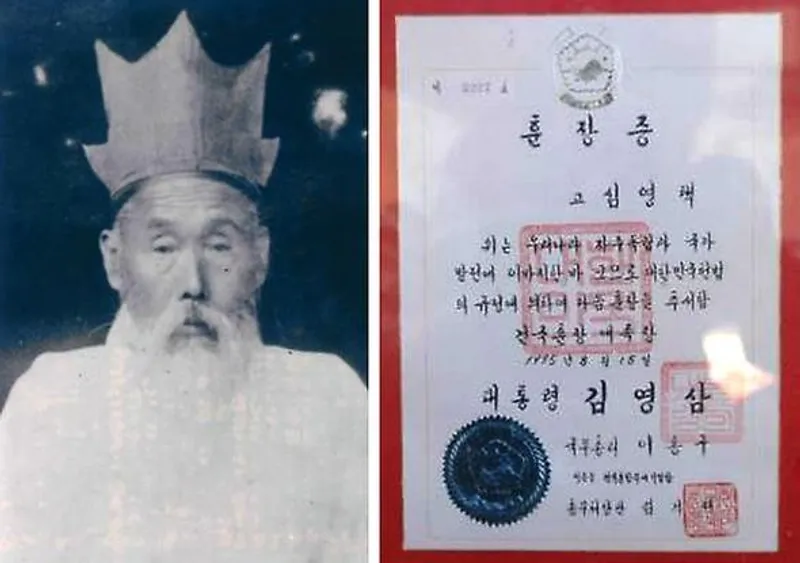 훈 장 증
고 심 영 택
위는 우리나라 자주독립과 국가
발전에 이바지한 바 크므로 대한민국헌법
의 규정에 의하여 다음 훈장을 추서함
건국훈장 애족장
1995년 8월 15일
대통령 김영삼
국무총리 이홍구
총무처장관 김기